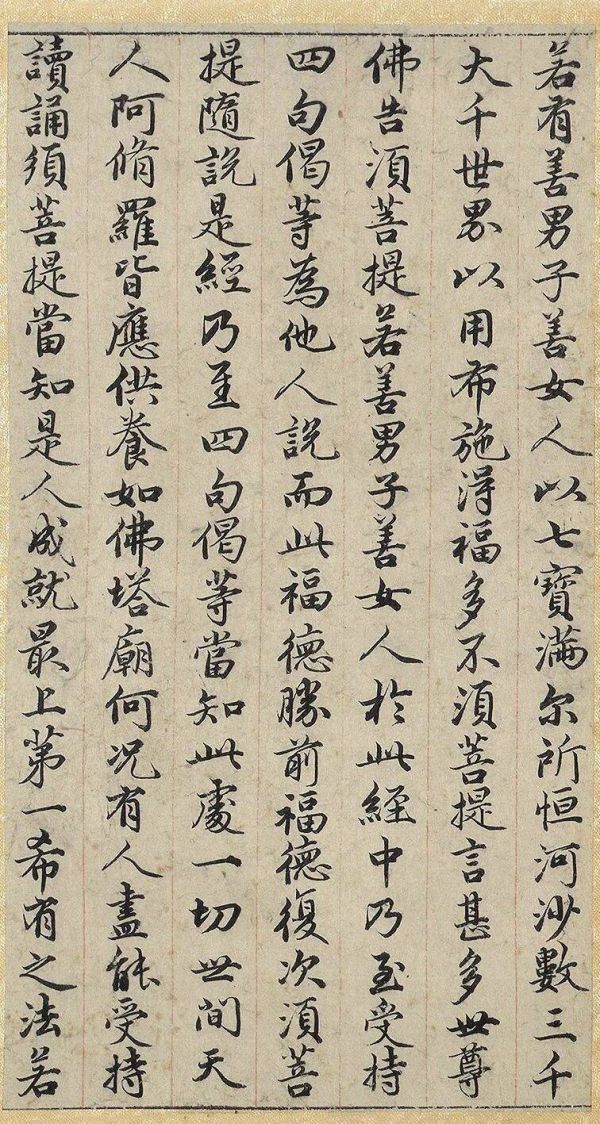 若有善男子善女人以七寶滿尒所恒河沙數三千
大千世界以用布施得福多不須菩提言甚多世尊
佛告須菩提若善男子善女人於此經中乃至受持
四句偈等為他人說而此福德勝前福德復次須菩
提隨說是經乃至四句偈等當知此處一切世間天
人阿脩羅皆應供養如佛塔廟何況有人盡能受持
讀誦須菩提當知是人成就最上第一希有之法若